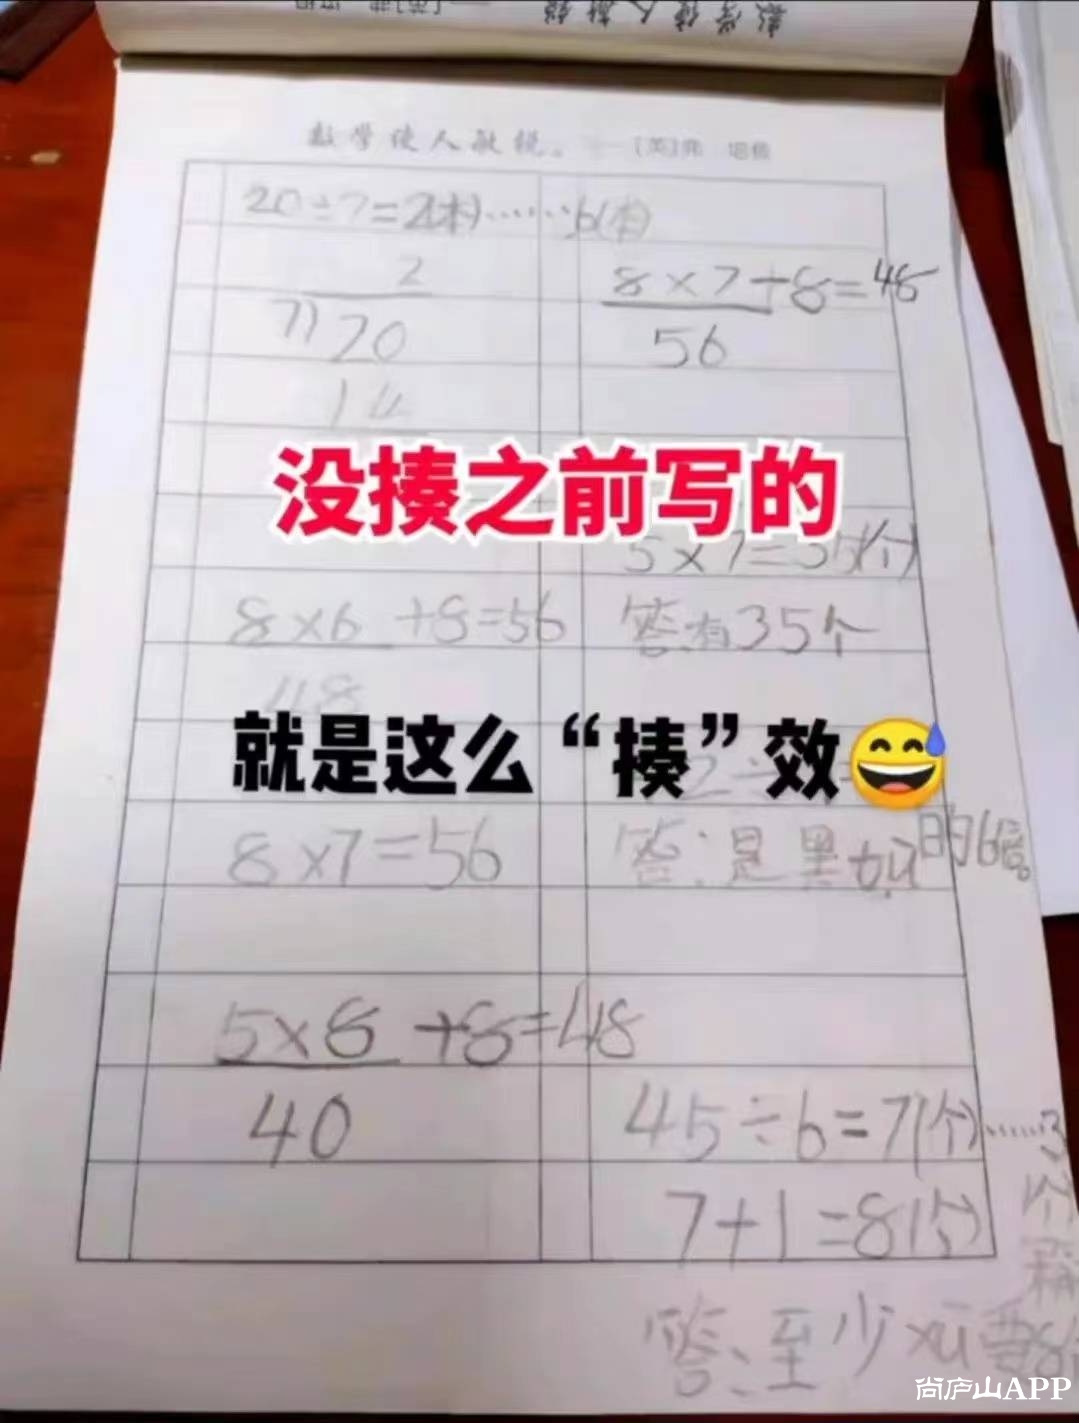 数学使人敏锐。
20÷7=2(本)……6(本)
2
7)20
14
8×7-8=48
56
没揍之前写的
5×7=35(个)
8×6+8=56
答:有35个
48
就是这么“揍”效😅
8×7=56
答:是黑加的6倍。
5×8+8=48
40
45÷6=7(个)……3
个
7+1=8(个)
答:至少xū要8
尚庐山APP